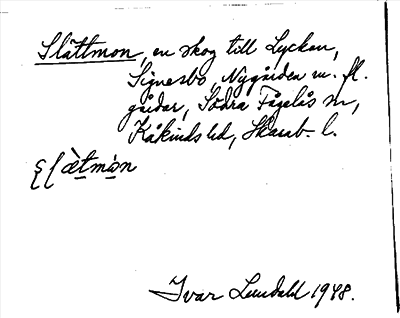 Slättmon, en skog till Lyckan,
Signesbo, Nygården m. fl.
gårdar, Södra Fågelås sn,
Kåkinds hd, Skarab. l.
Ivar Lundahl 1948.